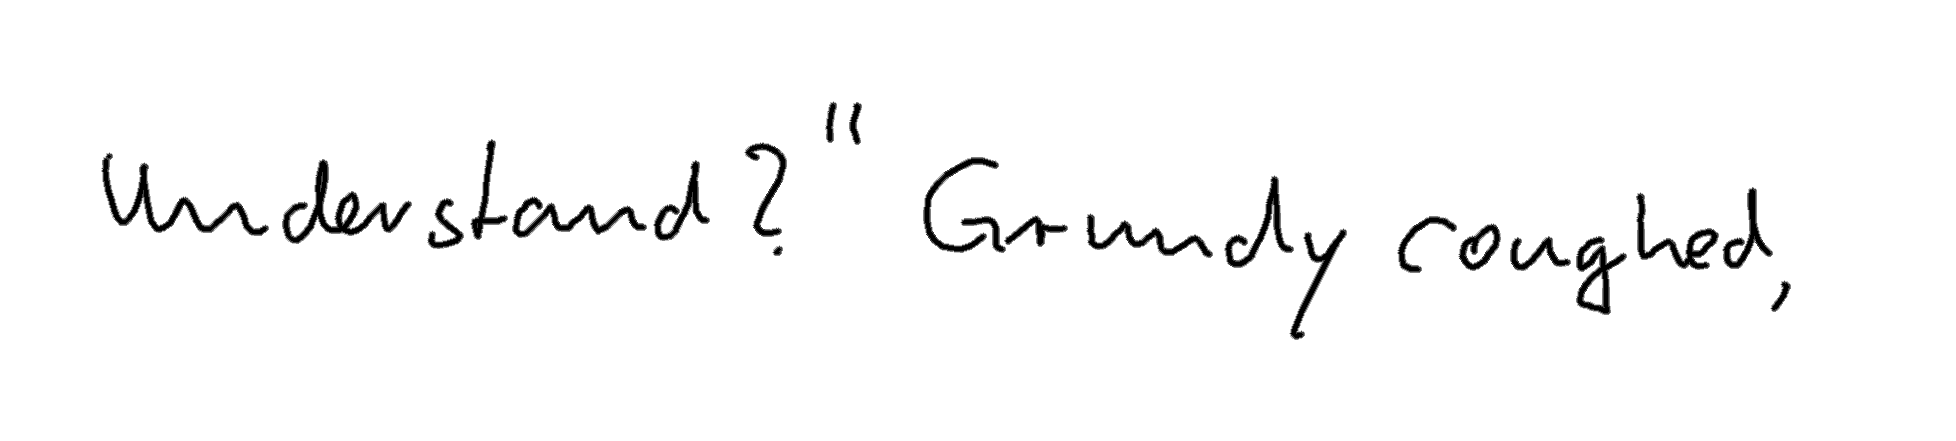 Understand?" Grundy coughed,